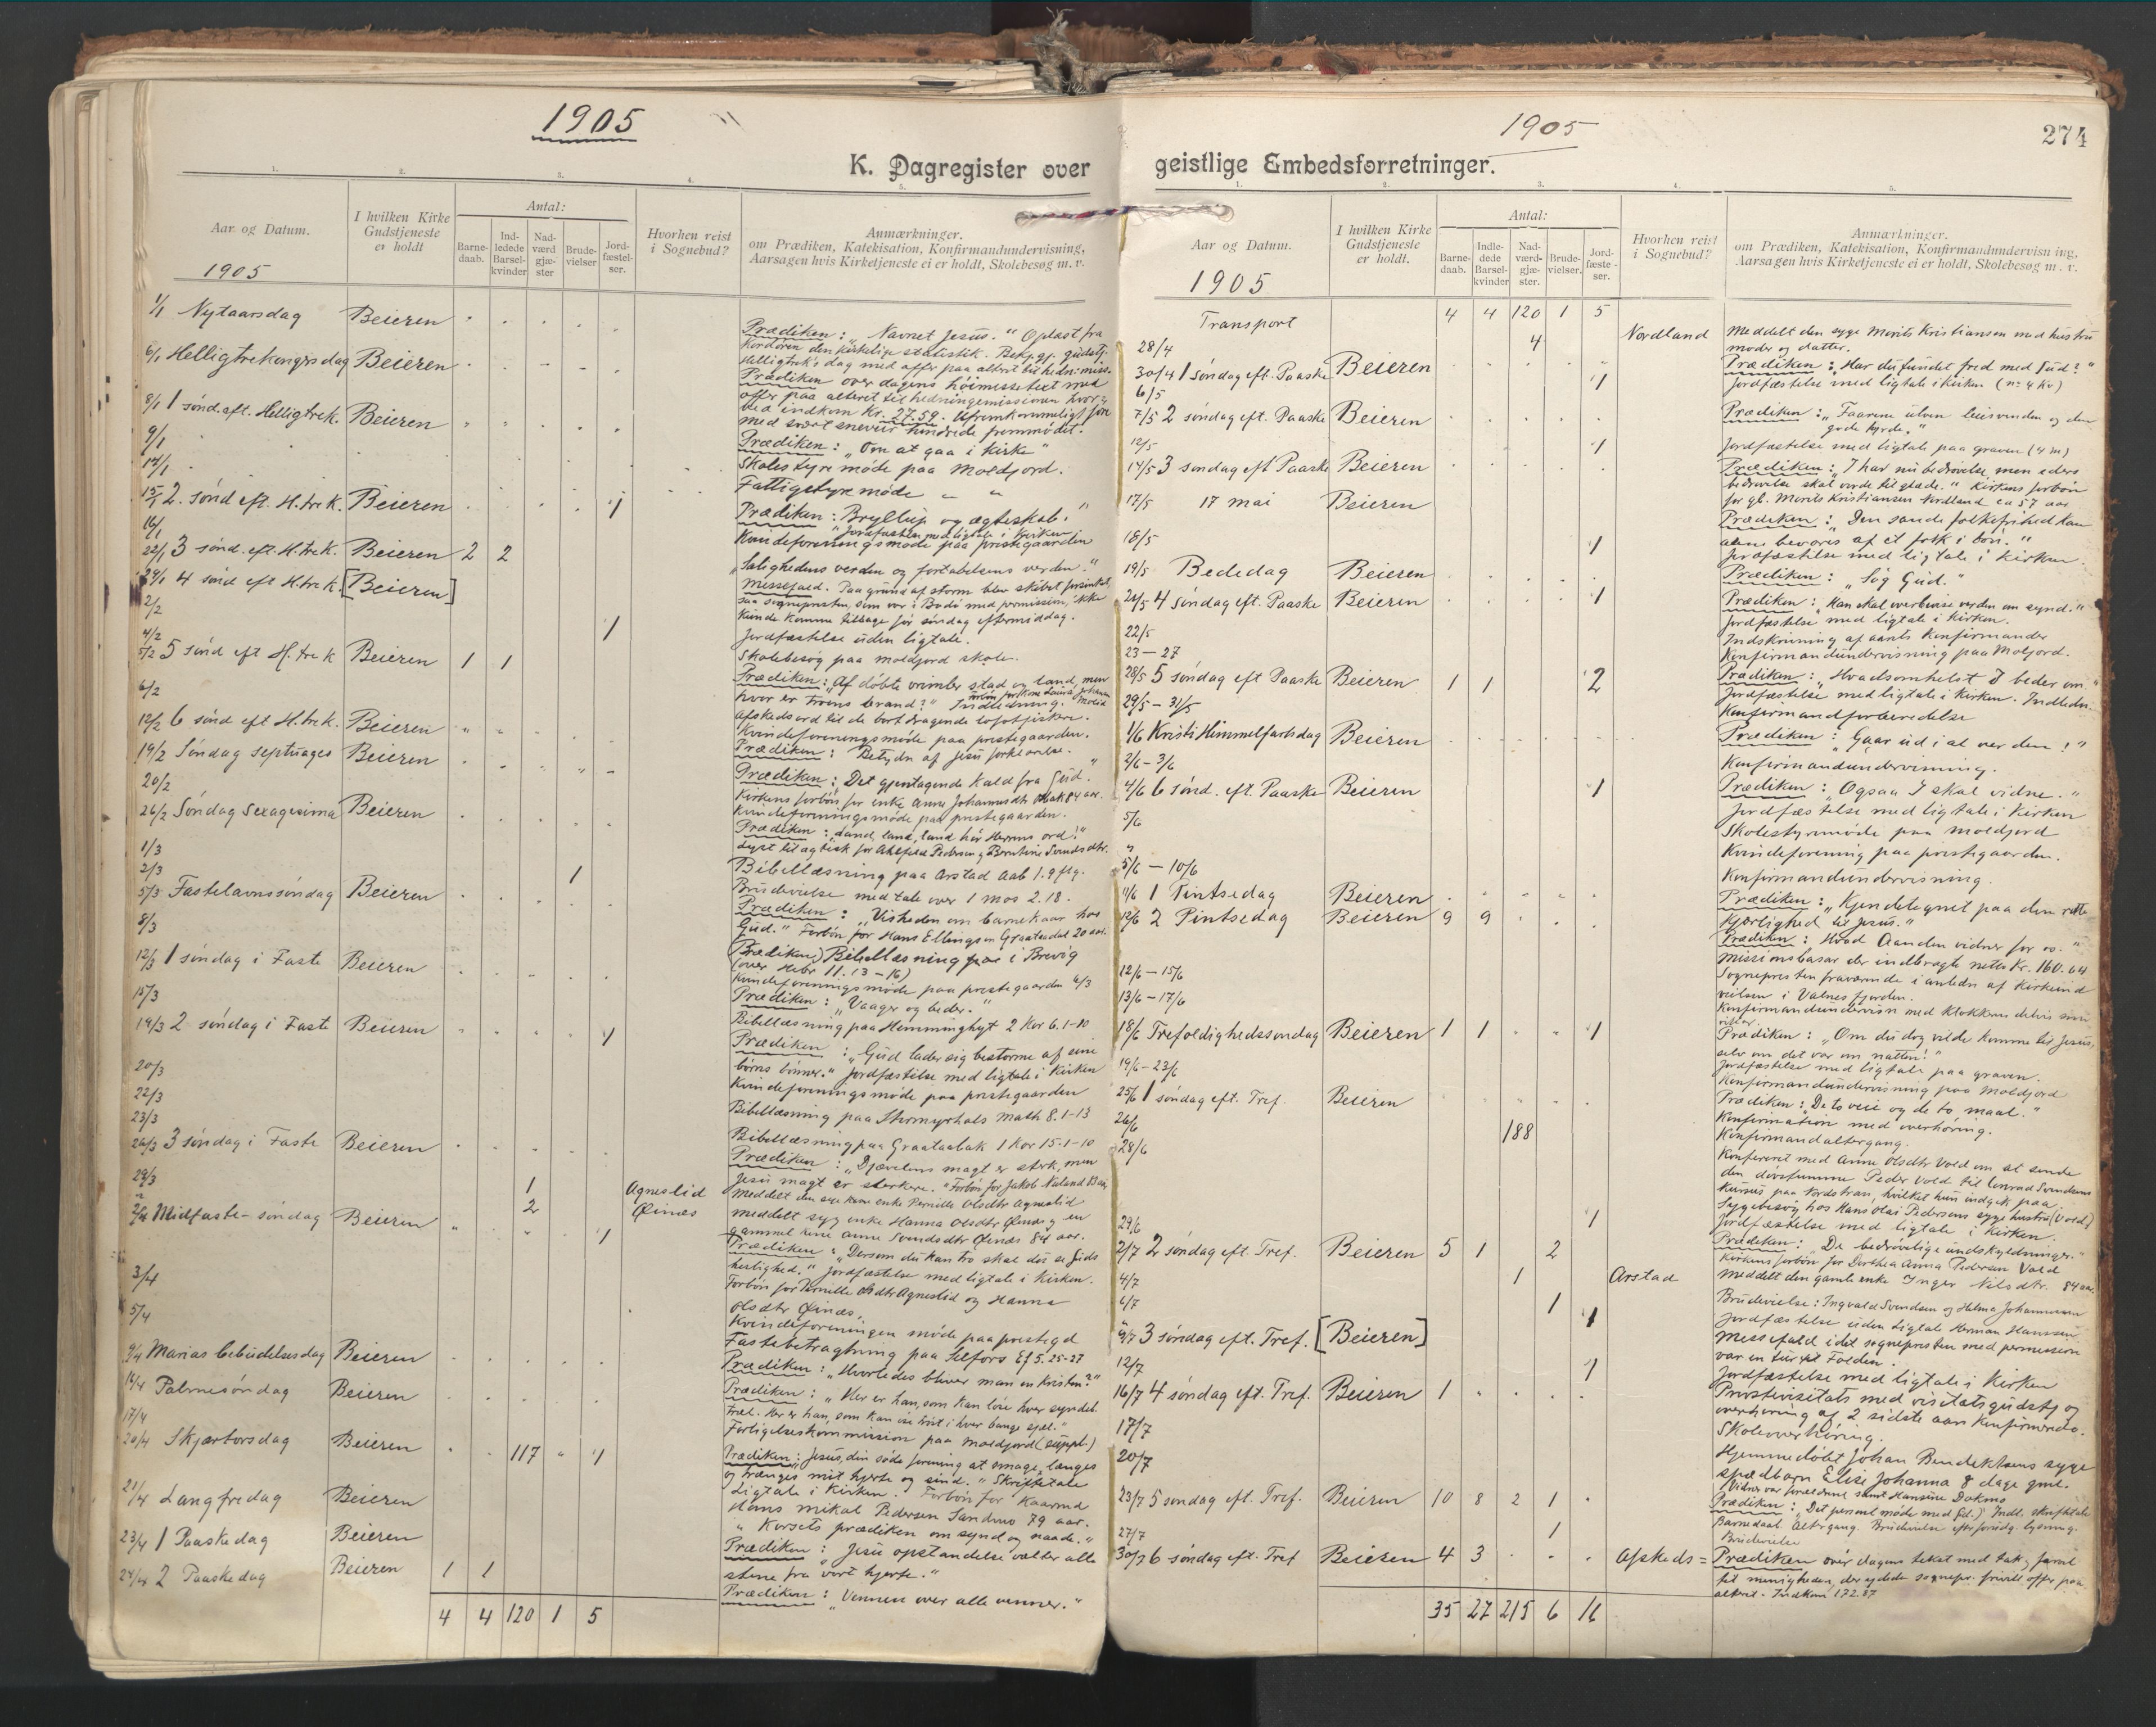 1905
K. Dagregister over
Aar og Datum.
I hvilken Kirke
Gudstjeneste
er holdt
Antal:
Barne-
daab.
Ind-
ledede
Barsel-
kvinder
Nad-
værd
gjæ-
ster
Brude-
vielser
Jord-
fæstel-
ser.
Hvorhen reist
i Sognebud?
Anmærkninger.
om Prædiken, Katekisation, Konfirmandundervisning,
Aarsagen hvis Kirketjeneste ei er holdt, Skolebesøg m. v.
1905
1/1 Nytaarsdag Beieren
Prædiken: "Navnet Jesus." Oplæst fra
Kordøren den kirkelige statistik. Bekjgj. gudstj.
6/1 Helligtrekongersdag Beieren
Helligtrek's dag med offer paa alteret til hedn: miss.
Prædiken over dagens høimessetext med
offer paa alteret til hedningemissionen hvor-
ved indkom Kr. 27.59. Ufremkommeligt føre
med svært sneveir hindrede fremmødet.
8/1 1 sønd. eft. Helligtrek. Beieren
Prædiken: "Om at gaa i Kirke"
9/1
Skolestyremøde paa Moldjord.
14/1
Fattigstyremøde " "
15/1 2. sønd eft. H. trek. Beieren 1
Prædiken: Bryllup og ægteskab."
Jordfæstelse med ligtale i Kirken
16/1
Kvindeforeningsmøde paa prestegaarden
22/1 3 sønd. eft. H. trek. Beieren 2 2
"Salighedens verden og fortabelsens verden."
29/1 4 sønd eft H. trek. [Beieren]
Messefald. Paa grund af storm blev skibet forsinket
saa sognepresten, som var i Bodø med permission, ikke
kunde komme tilbage før søndag eftermiddag.
2/2 1
Jordfæstelse uden ligtale.
4/2
Skolebesøg paa Moldjord skole.
5/2 5 sønd eft H. trek Beieren 1 1
Prædiken: "Af døbte vrimler stad og land, men
hvor er troens brand?" Indledning.
Afskedsord til de bortdragende lofotfiskere.
6/2
Kvindeforeningsmøde paa prestegaarden.
12/2 6 sønd eft H. trek. Beieren
Prædiken: "Betydn af Jesu forklarelse."
19/2 Søndag septuages Beieren
Prædiken: "Det gjentagende Kald fra Gud."
Kirkens forbøn for enke Anne Johannesdtr 84 aar.
20/2
Kvindeforeningsmøde paa prestegaarden.
26/2 Søndag Sexagesima Beieren
Prædiken: "Land, land, land hør Herrens ord!"
Lyst til ægtesk for Pedersen og Berntine Svendsdtr.
1/3
Bibellæsning paa Arstad Aab 1.9 flg.
2/3 1
Brudevielse med tale over 1 Mos 2.18.
5/3 Fastelavnssøndag Beieren
Prædiken: "Visheden om barnekaar hos
Gud." Forbøn for Hans Ellingsen Graataadal 20 aar.
8/3
(Prædiken) Bibellæsning i Brevig
(over Hebr 11.13-16)
Kvindeforeningsmøde paa prestegaarden 6/3
12/3 1 søndag i Faste Beieren
Prædiken: "Vaager og beder."
15/3
Bibellæsning paa Hemminghyt 2 Kor 6.1-10
19/3 2 søndag i Faste Beieren 1
Prædiken: "Gud lader sig bestorme af sine
børns bønner." Jordfæstelse med ligtale i Kirken
20/3
Kvindeforeningsmøde paa prestegaarden
22/3
Bibellæsning paa Stormyrhals Math 8.1-13
23/3
Bibellæsning paa Graataabak 1 Kor 15.1-10
26/3 3 søndag i Faste Beieren
Prædiken: "Djævelens magt er sterk, men
Jesu magt er sterkere." Forbøn for Jakob Naland 83 aar
29/3 1 Agneslid
Meddelt den syge enke Pernille Olsdtr Agneslid
" 2 Øinæs
meddelt syg enke Hanna Olsdtr Øinæs og en
gammel Anne Svendsdtr Øinæs 84 aar.
2/4 Midfaste-søndag Beieren 1
Prædiken: "Dersom du kan tro skal du se Guds
herlighed." Jordfæstelse med ligtale i Kirken.
Forbøn for Pernille Olsdtr Agneslid og Hanna
Olsdtr Øinæs.
3/4
Kvindeforeningen møde paa prestegd
5/4
Fastebetragtning paa Selfors Ef 5.25-27
9/4 Marias bebudelsesdag Beieren
Prædiken: "Hvorledes bliver man en Kristen?"
16/4 Palmesøndag Beieren
Prædiken: "Her er han, som kan løse hver syndet
træl. Her er han, som kan øse trøst i hver bange sjæl."
17/4
Forligelseskommission paa Moldjord (suppl.)
20/4 Skjærtorsdag Beieren 117 1
Prædiken: Jesus, din søde forening at smage, længes
og trænges mit hjerte og sind." Skriftetale
Ligtale i Kirken. Forbøn for Kaarmd
Hans Mikal Pedersen Sandmo 79 aar.
21/4 Langfredag Beieren
"Korsets prædiken om synd og naade."
23/4 1 Paaskedag Beieren
Prædiken: "Jesu opstandelse vælter alle
stene fra vort hjerte."
24/4 2 Paaskedag Beieren 1 1
Prædiken: "Vennen over alle venner."
4 4 120 1 5
1905
274
geistlige Embedsforretninger.
Aar og Datum.
I hvilken Kirke
Gudstjeneste
er holdt.
Antal:
Barne-
daab.
Indle-
dede
Barsel-
kvinder
Nad-
værd-
gjæ-
ster.
Brude-
vielser.
Jord-
fæste-
ser.
Hvorhen reist
i Sognebud?
Anmærkninger.
om Prædiken, Katekisation, Konfirmandundervisning,
Aarsagen hvis Kirketjeneste ei er holdt, Skolebesøg m. v.
1905
Transport 4 4 120 1 5
28/4 4 Nordland
Meddelt den syge Morits Kristiansen med hustru
moder og datter.
30/4 1 søndag eft. Paaske Beieren
Prædiken: "Har du fundet fred med Gud?"
6/5 1
Jordfæstelse med ligtale i Kirken
7/5 2 søndag eft. Paaske Beieren
Prædiken: "Faarene ulven leiesvenden og den
gode hyrde."
12/5 1
Jordfæstelse med ligtale paa graven
14/5 3 søndag eft Paaske Beieren
Prædiken: "I har nu bedrøvelse men eders
bedrøvelse skal vorde til glæde." Kirkens forbøn
for gb. Morits Kristiansen Nordland ca 57 aar
17/5 17 mai Beieren
Prædiken: "Den sande folkefrihed kan
alene bevares af et folk i bøn."
18/5 1
Jordfæstelse med ligtale i Kirken.
19/5 Bededag Beieren
Prædiken: "Søg Gud."
21/5 4 søndag eft. Paaske Beieren 1
Prædiken: "Han skal overbevise verden om synd."
Jordfæstelse med ligtale i Kirken.
22/5
Indskrivning af aarets Konfirmander
23-27
Konfirmandundervisning paa Moljord.
28/5 5 søndag eft Paaske Beieren 1 1 2
Prædiken: "Hvadsomhelst I beder om"
Jordfæstelse med ligtale i Kirken. Indledn.
29/5-31/5
Konfirmandforberedelse
1/6 Kristi Himmelfartsdag Beieren
Prædiken: "Gaar ud i al verden!"
2/6-3/6
Konfirmandundervisning.
4/6 6 sønd. eft. Paaske Beieren 1
Prædiken: "Ogsaa I skal vidne."
Jordfæstelse med ligtale i Kirken
5/6
Skolestyremøde paa Moldjord
"
Kvindeforening paa prestegaarden.
5/6-10/6
Konfirmandundervisning.
11/6 1 Pintsedag Beieren
Prædiken: "Kjendetegnet paa den rette
Kjærlighed til Jesus."
12/6 2 Pintsedag Beieren 9 9
Prædiken: Hvad Aanden vidner for os."
Missionsbasar der indbragte netto Kr. 160.64
12/6-15/6
Sognepresten fraværende i anledn af Kirkeind
vielsen i Valnesfjorden.
13/6-17/6
Konfirmandundervisn med Klokkeren delvis som
vikar.
18/6 Trefoldighedssøndag Beieren 1 1 1
Prædiken: "Om du dog vilde komme til Jesus,
selv om det var om natten!"
Jordfæstelse med ligtale paa graven.
19/6-23/6
Konfirmandundervisning paa Moldjord
25/6 1 søndag eft. Tref. Beieren
Prædiken: "De to veie og de to maal."
Konfirmation med overhøring.
26/6 188
Konfirmandaltergang.
28/6
Konfereret med Anne Olsdtr Vold om at sende
den døvstumme Peder Vold til Conrad Svendsens
Kursus paa Nordstran, hvilket hun indgik paa
Sygebesøg hos Hans Olai Pedersens syge hustru (Vold)
29/6 1
Jordfæstelse med ligtale i Kirken.
2/7 2 søndag eft. Tref. Beieren 5 1 2
Prædiken: "De bedrøvelige undskyldninger."
Kirkens forbøn for Dorthea Anna Pedersen Vold
4/7 1 Arstad
Meddelt den gamle enke Inger Nilsdtr. 84 aar.
6/7 1
Brudevielse: Ingvald Svendsen og Helma Johannesen
" 1
Jordfæstelse uden ligtale Herman Hanssen
9/7 3 søndag eft. Tref. [Beieren]
Messefald idet sognepresten med permission
var en tur til Folden.
12/7 1
Jordfæstelse med ligtale i Kirken
16/7 4 søndag eft. Tref. Beieren 1
Provstevisitats med visitatsgudstj og
overhøring af 2 sidste aars Konfirmerede.
17/7
Skoleoverhøring.
20/7
Hjemmedøbt Johan Bendiktsens syge
spædbarn Elise Johanna 8 dage gml.
Vidner var forældrene samt Hansine Dokmo
23/7 5 søndag eft. Tref. Beieren 10 8 2 1
Prædiken: "Det personl møde med Gud." Indl. skriftetale
Barnedaab. Altergang. Brudevielse efter foreg. lysning.
27/7 1
Brudevielse
30/7 6 søndag eft. Tref Beieren 4 3 Afskeds=
Prædiken over dagens tekst med tak og farvel
til menigheden, der ydede sognepr. frivilli offer paa
alteret. Indkom 172.87
35 27 215 6 16